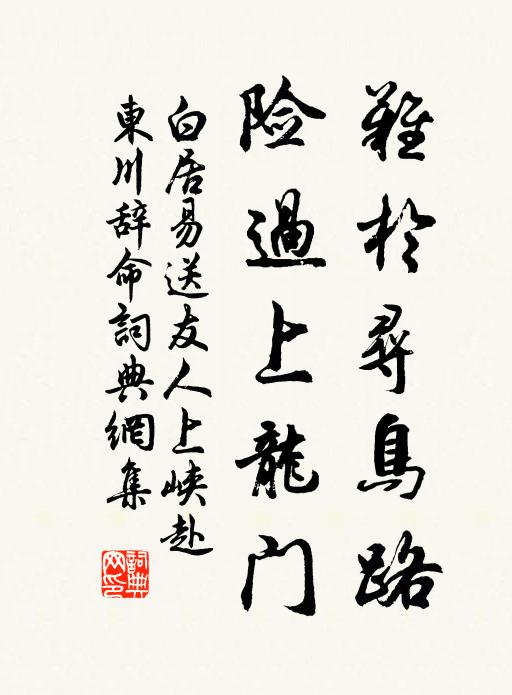 難於尋鳥路
险過上龍门
白居易送友人上峡赴
東川辞命詞典網集
詞典网印